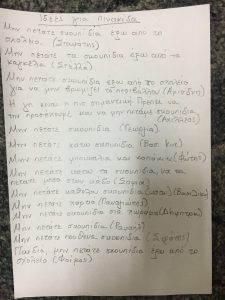 Ιδέες για πινακίδα
Μην πετάτε σκουπίδια έξω από το
σχολείο. (Σταμάτης)
Μην πετάτε τα σκουπίδια έξω από τα
καγκελα (Στέλλα)
Μην πετάτε σκουπίδια έξω από το σχολείο
για να μην βρωμίζει το περιβάλλον (Αριάδνη)
Η γη είναι η πιο σημαντική Πρέπει να
την προσέχουμε και να μην πετάμε σκουπίδια
(Αχιλλέας)
Μην πετάτε σκουπίδια (Γεωργία)
Μην πετάτε κάτω σκουπίδια (Βασ. Κυτ.)
Μην πετάτε μπουκάλια και καπάκια (Φώτης)
Μην πετάτε κάτω τα σκουπίδια, να τα
πετάτε μέσα στον κάδο (Σοφία)
Μην πετάτε καθόλου σκουπίδια (Βασιλεία)
Μην πετάτε χαρτιά (Παναγιώτης)
Μην πετάτε σκουπίδια στο χώμα (Δήμητρα)
Μην πετάτε σκουπίδια (Ραφαήλ)
Μην πετάτε πουθενά σκουπίδια (Σιφάτ)
Παιδιά, μην πετάτε σκουπίδια έξω από το
σχολείο (Φοίβος)